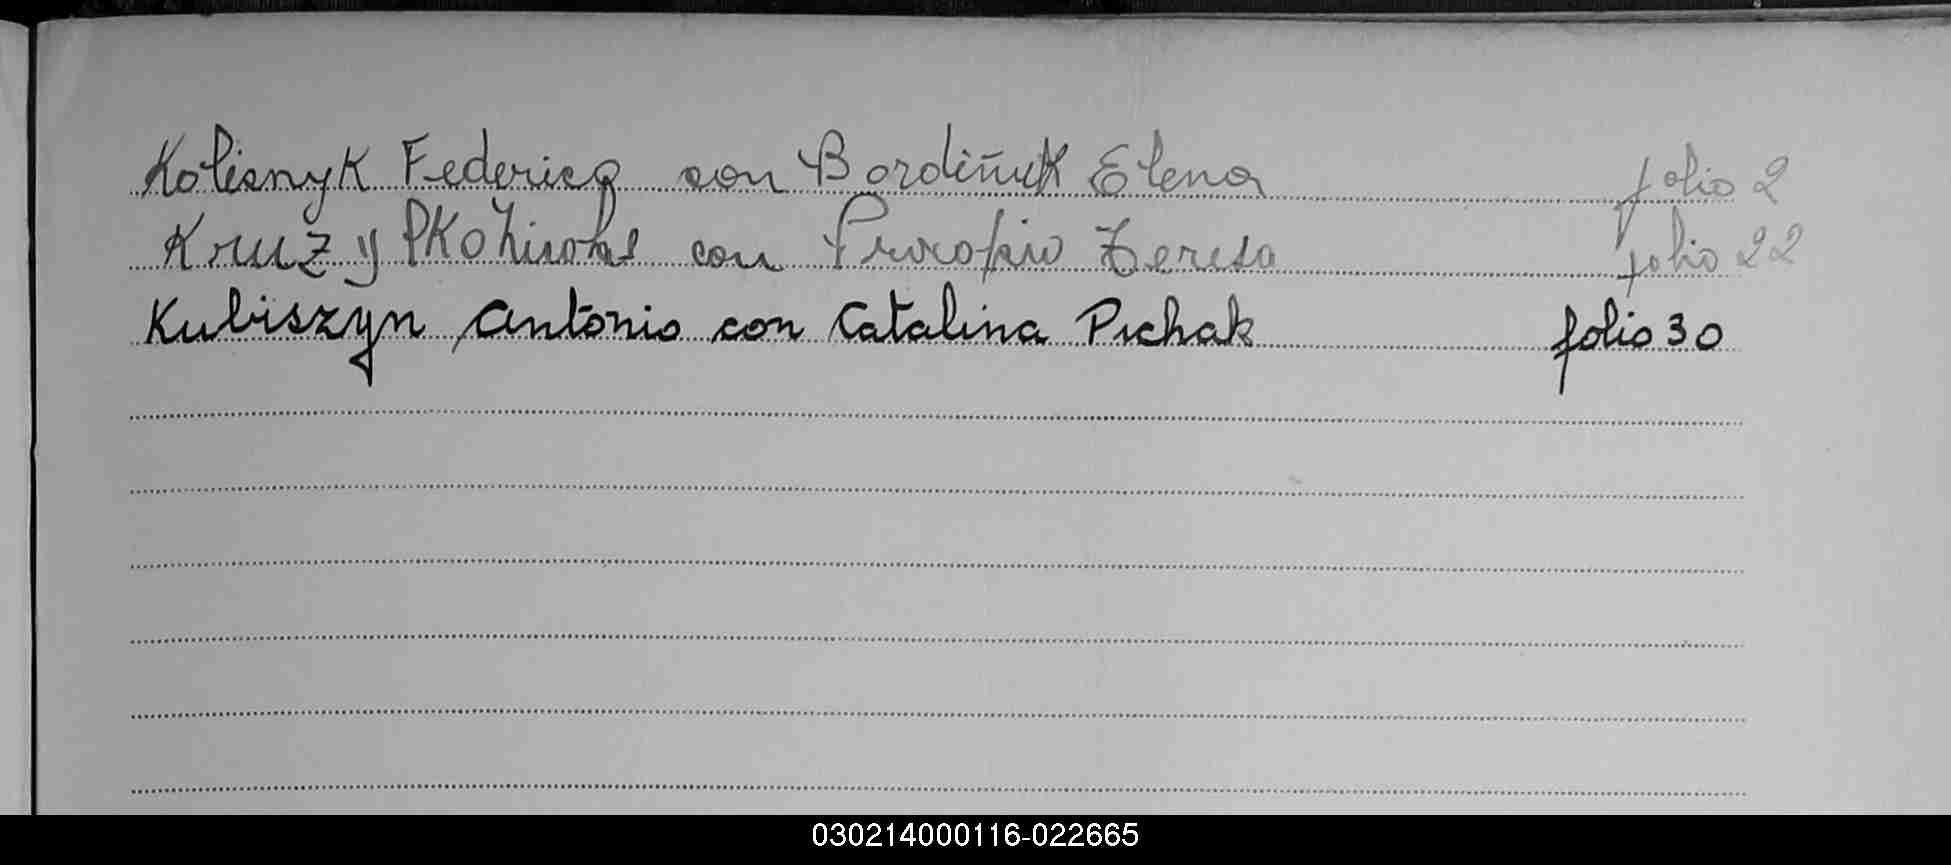 Kolisnyk Federico con Bordiñuk Elena folio 2
con Procopio Teresa folio 22
Kubiszyn Antonio con Catalina Pichak folio 30
030214000116-022665